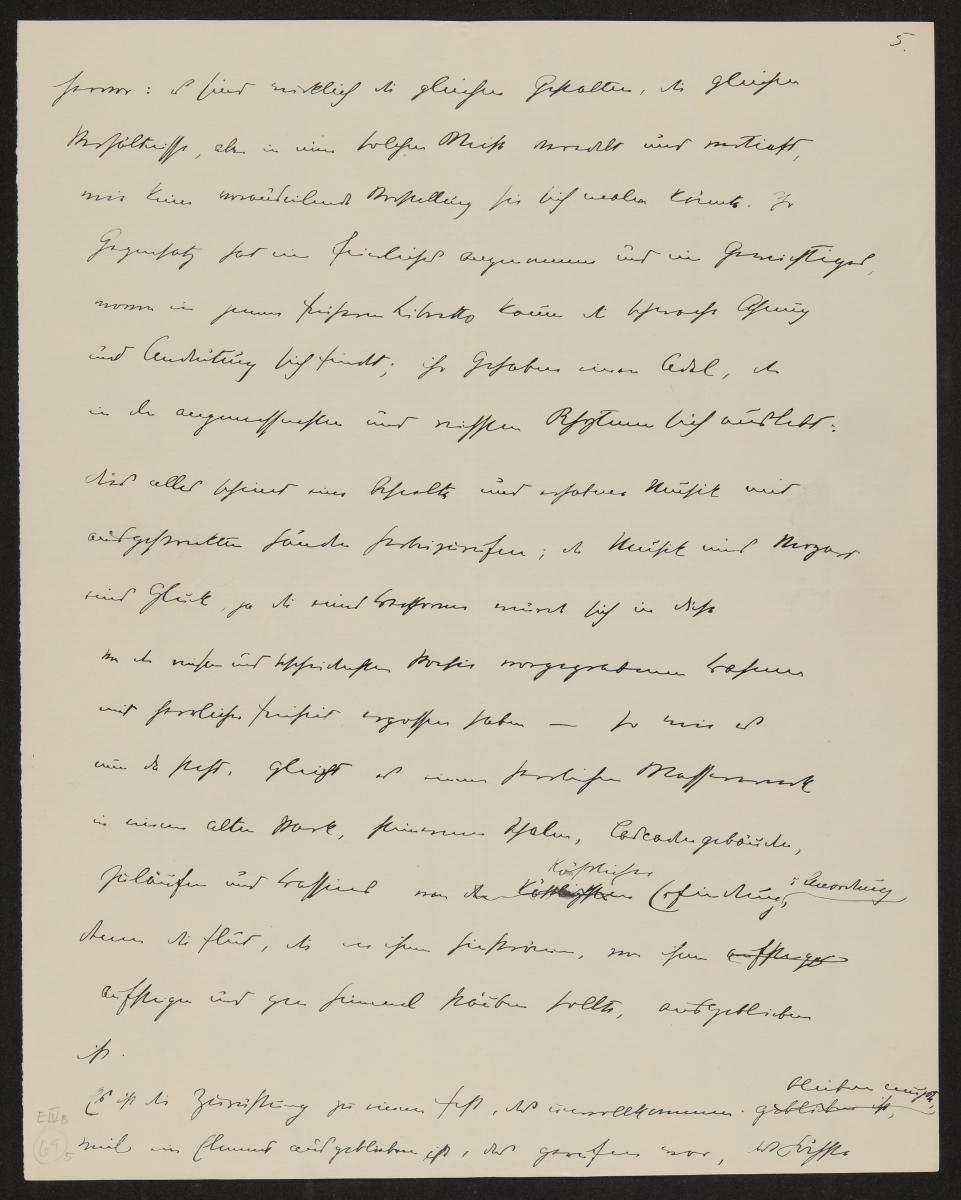 5.
hervor: es sind wirklich die gleichen Gestalten, die gleichen
Verhältnisse, aber in einer solchen Weise veredelt und vertieft,
wie keine vorauseilende Vorstellung sie sich malen könnte. Ihr
Gegensatz hat ein Feierliches angenommen und ein Gewichtiges,
wovon in jenem früheren Libretto kaum die schwache Ahnung
und Andeutung sich findet; ihr Gehaben einen Adel, der
in den angemessensten und reifsten Rhythmen sich auslebt:
dies alles scheint eine beseelte und erhabene Musik mit
ausgestreckten Händen herbeizurufen; die Musik eines Mozart
eines Gluck, ja die eines Beethoven würde sich in diese
von der reinen und bescheidensten Poesie vorgegrabenen
mit herrlicher Freiheit ergossen haben — so wie es
nun da steht, gleicht es einem herrlichen Wasserwerk
in einem alten Park, steinernen Schalen, Cascadengebäuden,
Zuläufen und Bassins von der köstlichsten Erfindung, u. Anordnung
denen die Flut, die in ihnen hinströmen, von ihnen
aufsteigen und gen Himmel stäuben sollte, ausgeblieben
ist.
Es ist die Zurüstung zu einem Fest, das unvollkommen bleiben musste,
weil ein Element ausgeblieben ist, das gerufen war, das höchste
E IV B
69
5